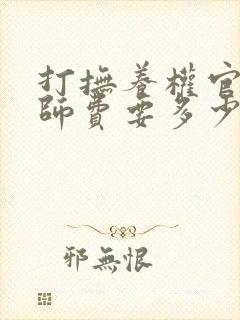 打撫養權官
師費要多少
邪無恨